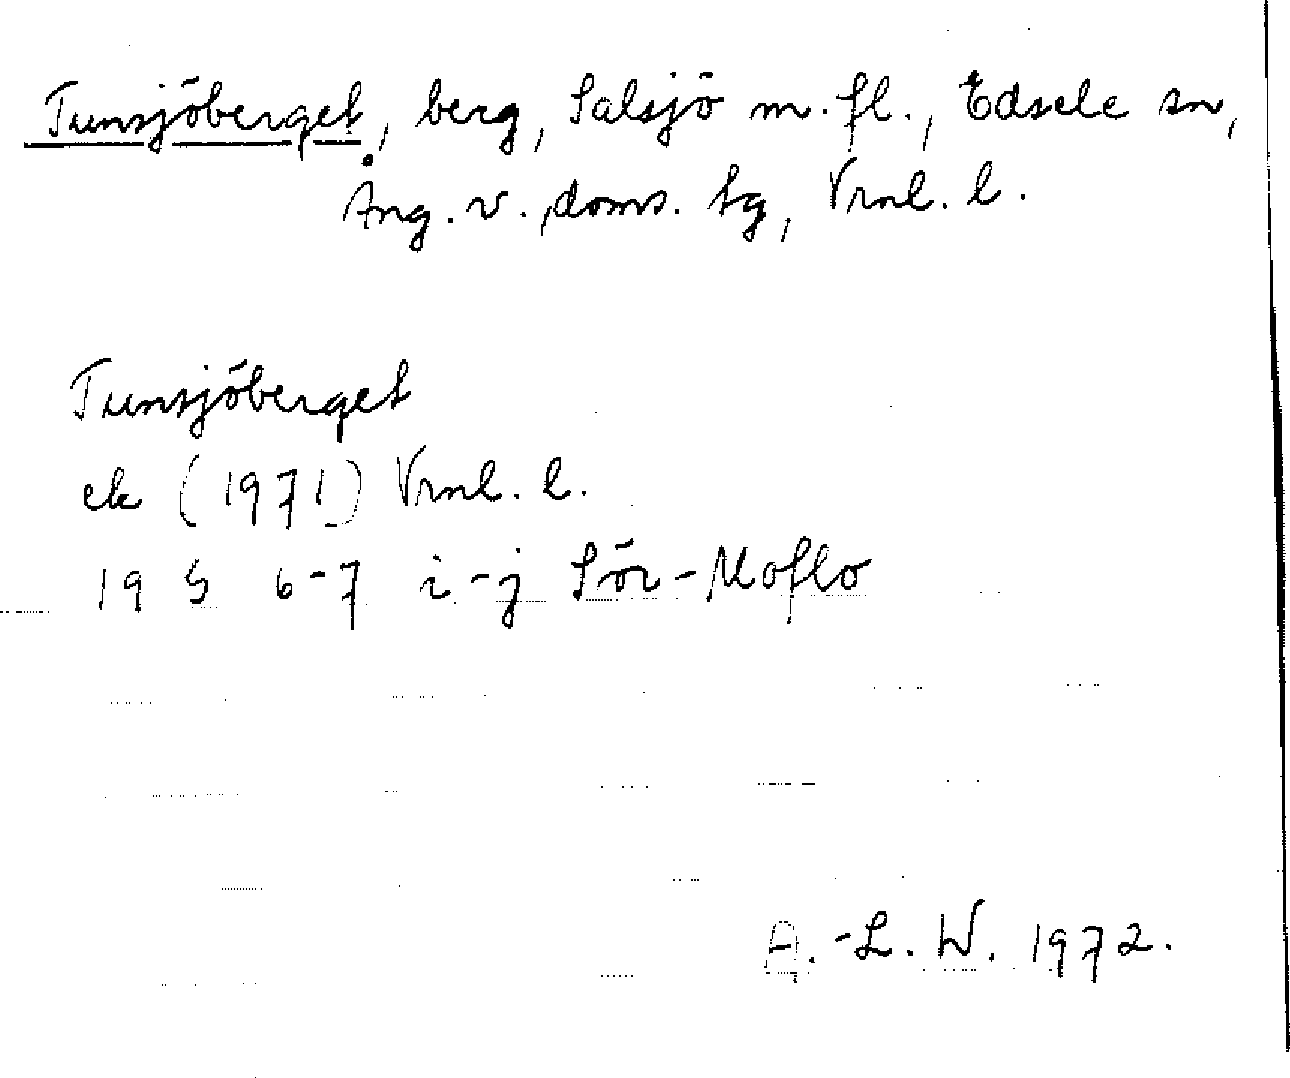 Tunsjöberget, berg, Salsjö m. fl., Edsele sn,
Ång. v. doms. tg, Vrnl. l.
Tunsjöberget
ek (1971) Vrnl. l.
19 G 6-7 i-j Sör-Moflo
A.-L. W. 1972.